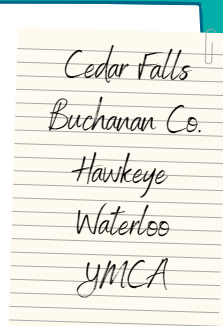 Cedar Falls
Buchanan Co.
Hawkeye
Waterloo
YMCA